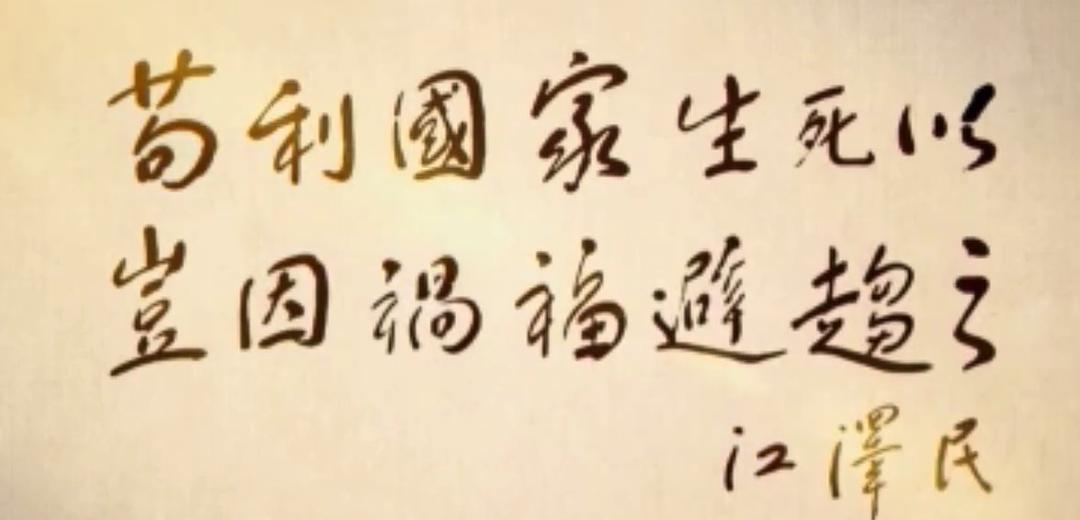 苟利國家生死以
豈因禍福避趨之
江澤民